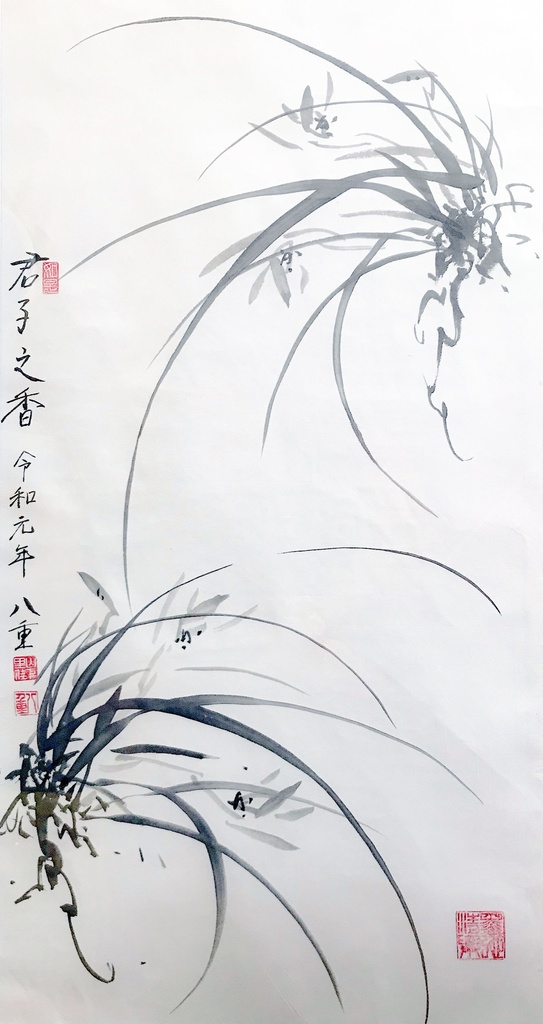 君子之香 令和元年 八重